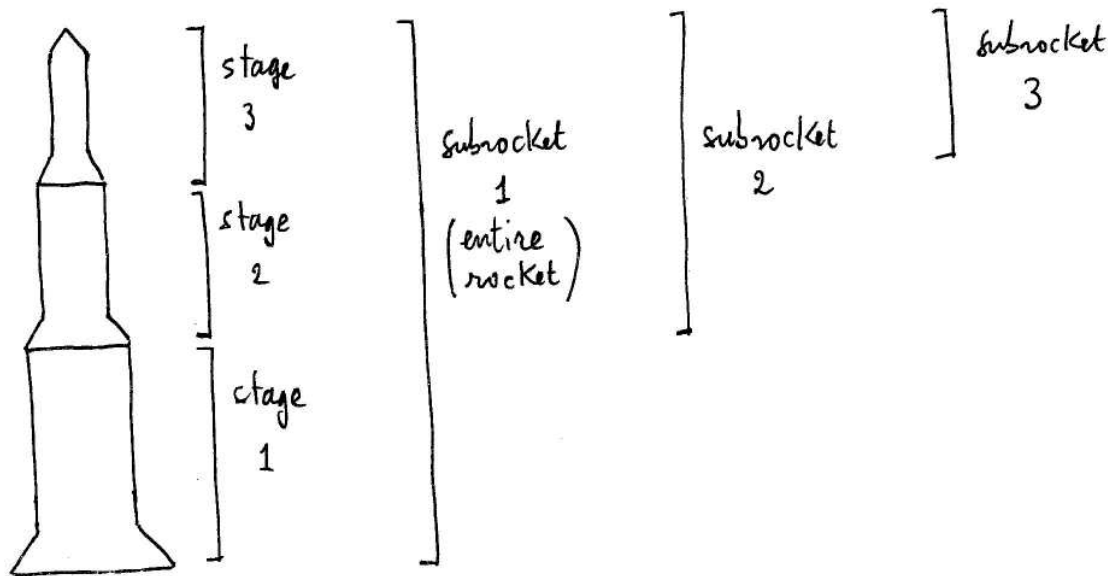 stage
3
stage
2
ctage
1
subrocket
1
(entire
rocket)
subrocket
2
subrocket
3